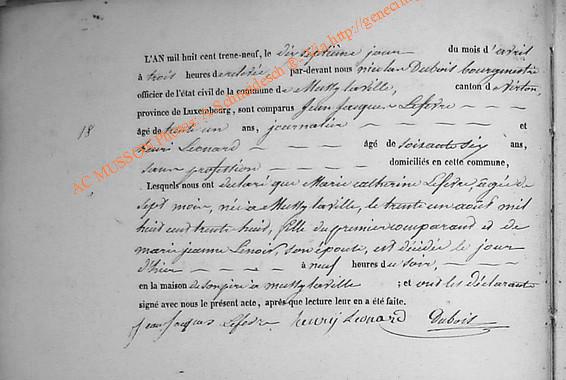 L'AN mil huit cent trene-neuf, le dix septième jour du mois d'avril
à trois heures de relevée par-devant nous nicolas Dubois bourgmestre
officier de l'état civil de la commune de Mussy la ville, canton de Virton,
province de Luxembourg, sont comparus Jean Jacques Lefevre
18 âgé de trente un ans, journalier et
henri Leonard âgé de soixante six ans,
sans profession domiciliés en cette commune,
Lesquels nous ont declaré que Marie catherine Lefevre, agée de
sept mois, née à Mussy la ville, le trente un août mil
huit cent trente huit, fille du premier comparant et de
marie jeanne Linois, son épouse, est décédée le jour
d'hier à neuf heures du soir,
en la maison de son père à mussy la ville ; et ont les déclarants
signé avec nous le présent acte, après que lecture leur en a été faite.
Jean Jacques Lefevre henrij Leonard Dubois
AC MUSSON Photos: © Schlaudesch @ - Via http://genec